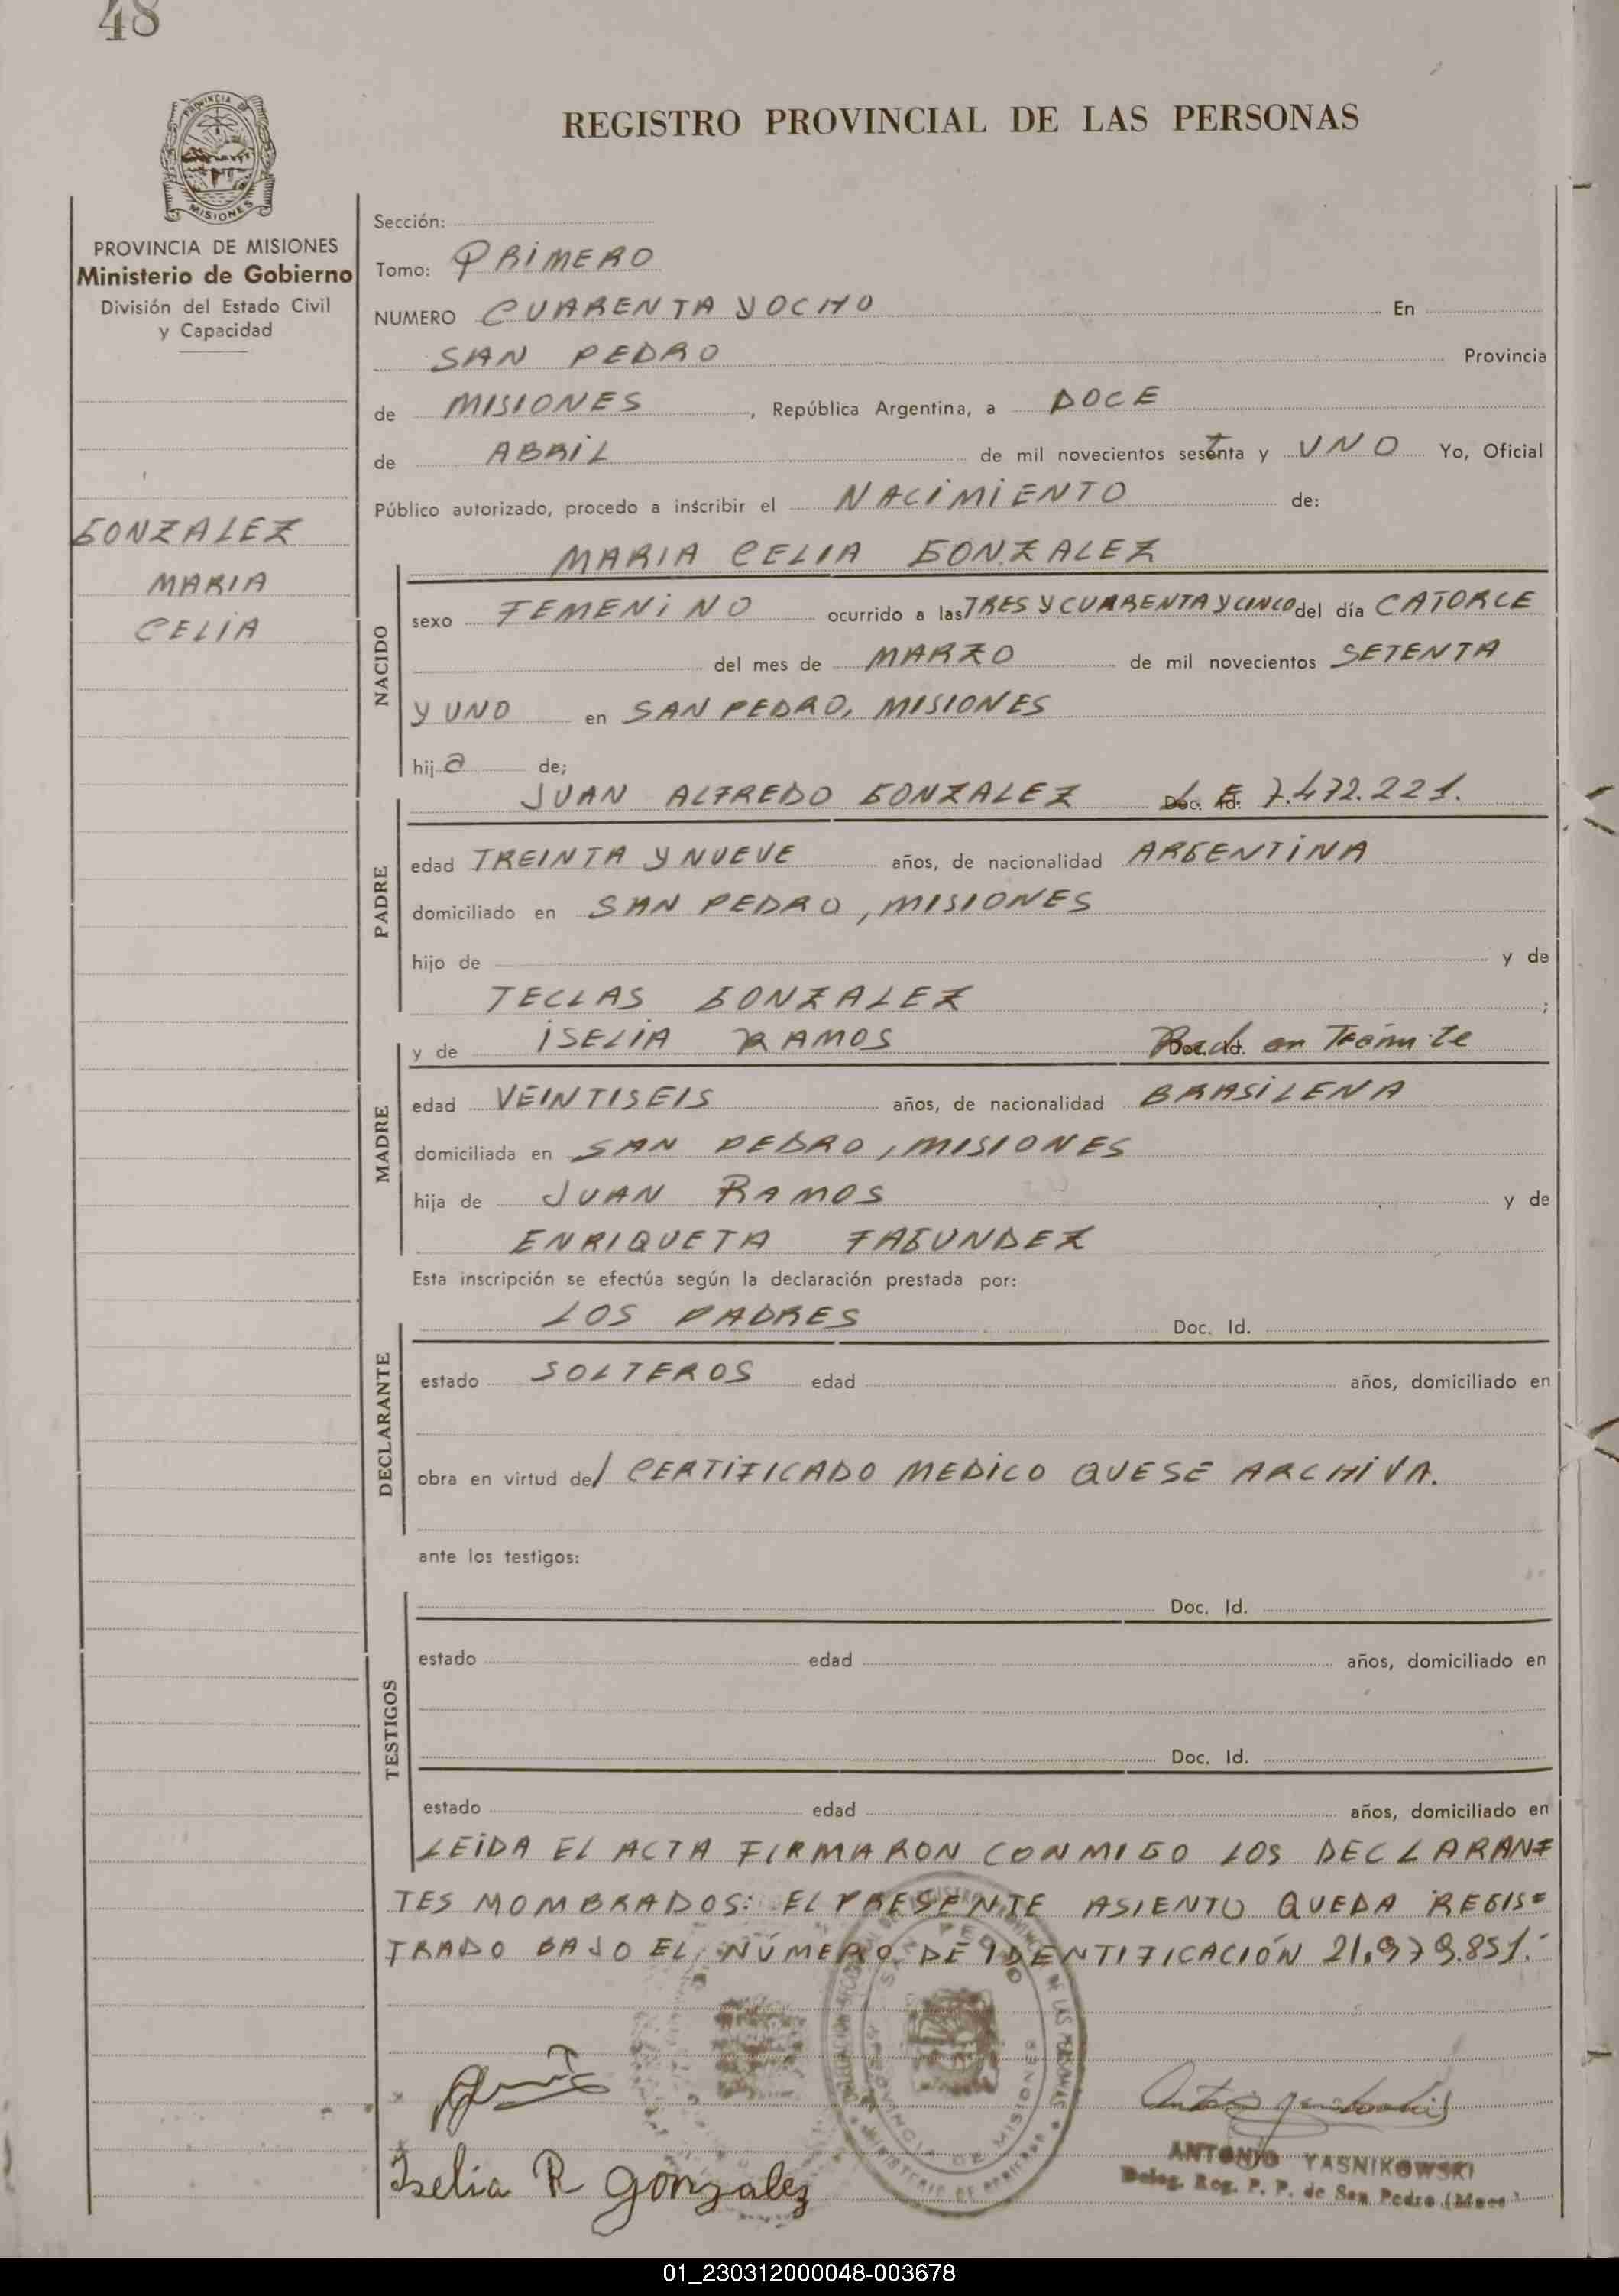 48
REGISTRO PROVINCIAL DE LAS PERSONAS
PROVINCIA DE MISIONES
Ministerio de Gobierno
División del Estado Civil
y Capacidad
GONZALEZ
MARIA
CELIA
Sección:
Tomo: PRIMERO
NUMERO CUARENTA Y OCHO En
SAN PEDRO Provincia
de MISIONES, República Argentina, a DOCE
de ABRIL de mil novecientos setenta y UNO Yo, Oficial
Público autorizado, procedo a inscribir el NACIMIENTO de:
MARIA CELIA GONZALEZ
NACIDO
sexo FEMENINO ocurrido a las TRES Y CUARENTA Y CINCO del día CATORCE
del mes de MARZO de mil novecientos SETENTA
Y UNO en SAN PEDRO, MISIONES
hija de;
JUAN ALFREDO GONZALEZ L.E. 7.472.221.
PADRE
edad TREINTA Y NUEVE años, de nacionalidad ARGENTINA
domiciliado en SAN PEDRO, MISIONES
hijo de y de
TECLAS GONZALEZ ;
y de ISELIA RAMOS Doc. Id. en Trámite
MADRE
edad VEINTISEIS años, de nacionalidad BRASILENA
domiciliada en SAN PEDRO, MISIONES
hija de JUAN RAMOS y de
ENRIQUETA FAGUNDEZ
Esta inscripción se efectúa según la declaración prestada por:
LOS PADRES Doc. Id.
DECLARANTE
estado SOLTEROS edad años, domiciliado en
obra en virtud del CERTIFICADO MEDICO QUE SE ARCHIVA.
ante los testigos:
Doc. Id.
TESTIGOS
estado edad años, domiciliado en
Doc. Id.
estado edad años, domiciliado en
LEIDA EL ACTA FIRMARON CONMIGO LOS DECLARAN=
TES MOMBRADOS: EL PRESENTE ASIENTO QUEDA REGIS=
TRADO BAJO EL NÚMERO DE IDENTIFICACIÓN 21.979.851.-
Iselia R Gonzalez
ANTONIO YASNIKOWSKI
Deleg. Reg. P. P. de San Pedro (Mnes.)
01_230312000048-003678